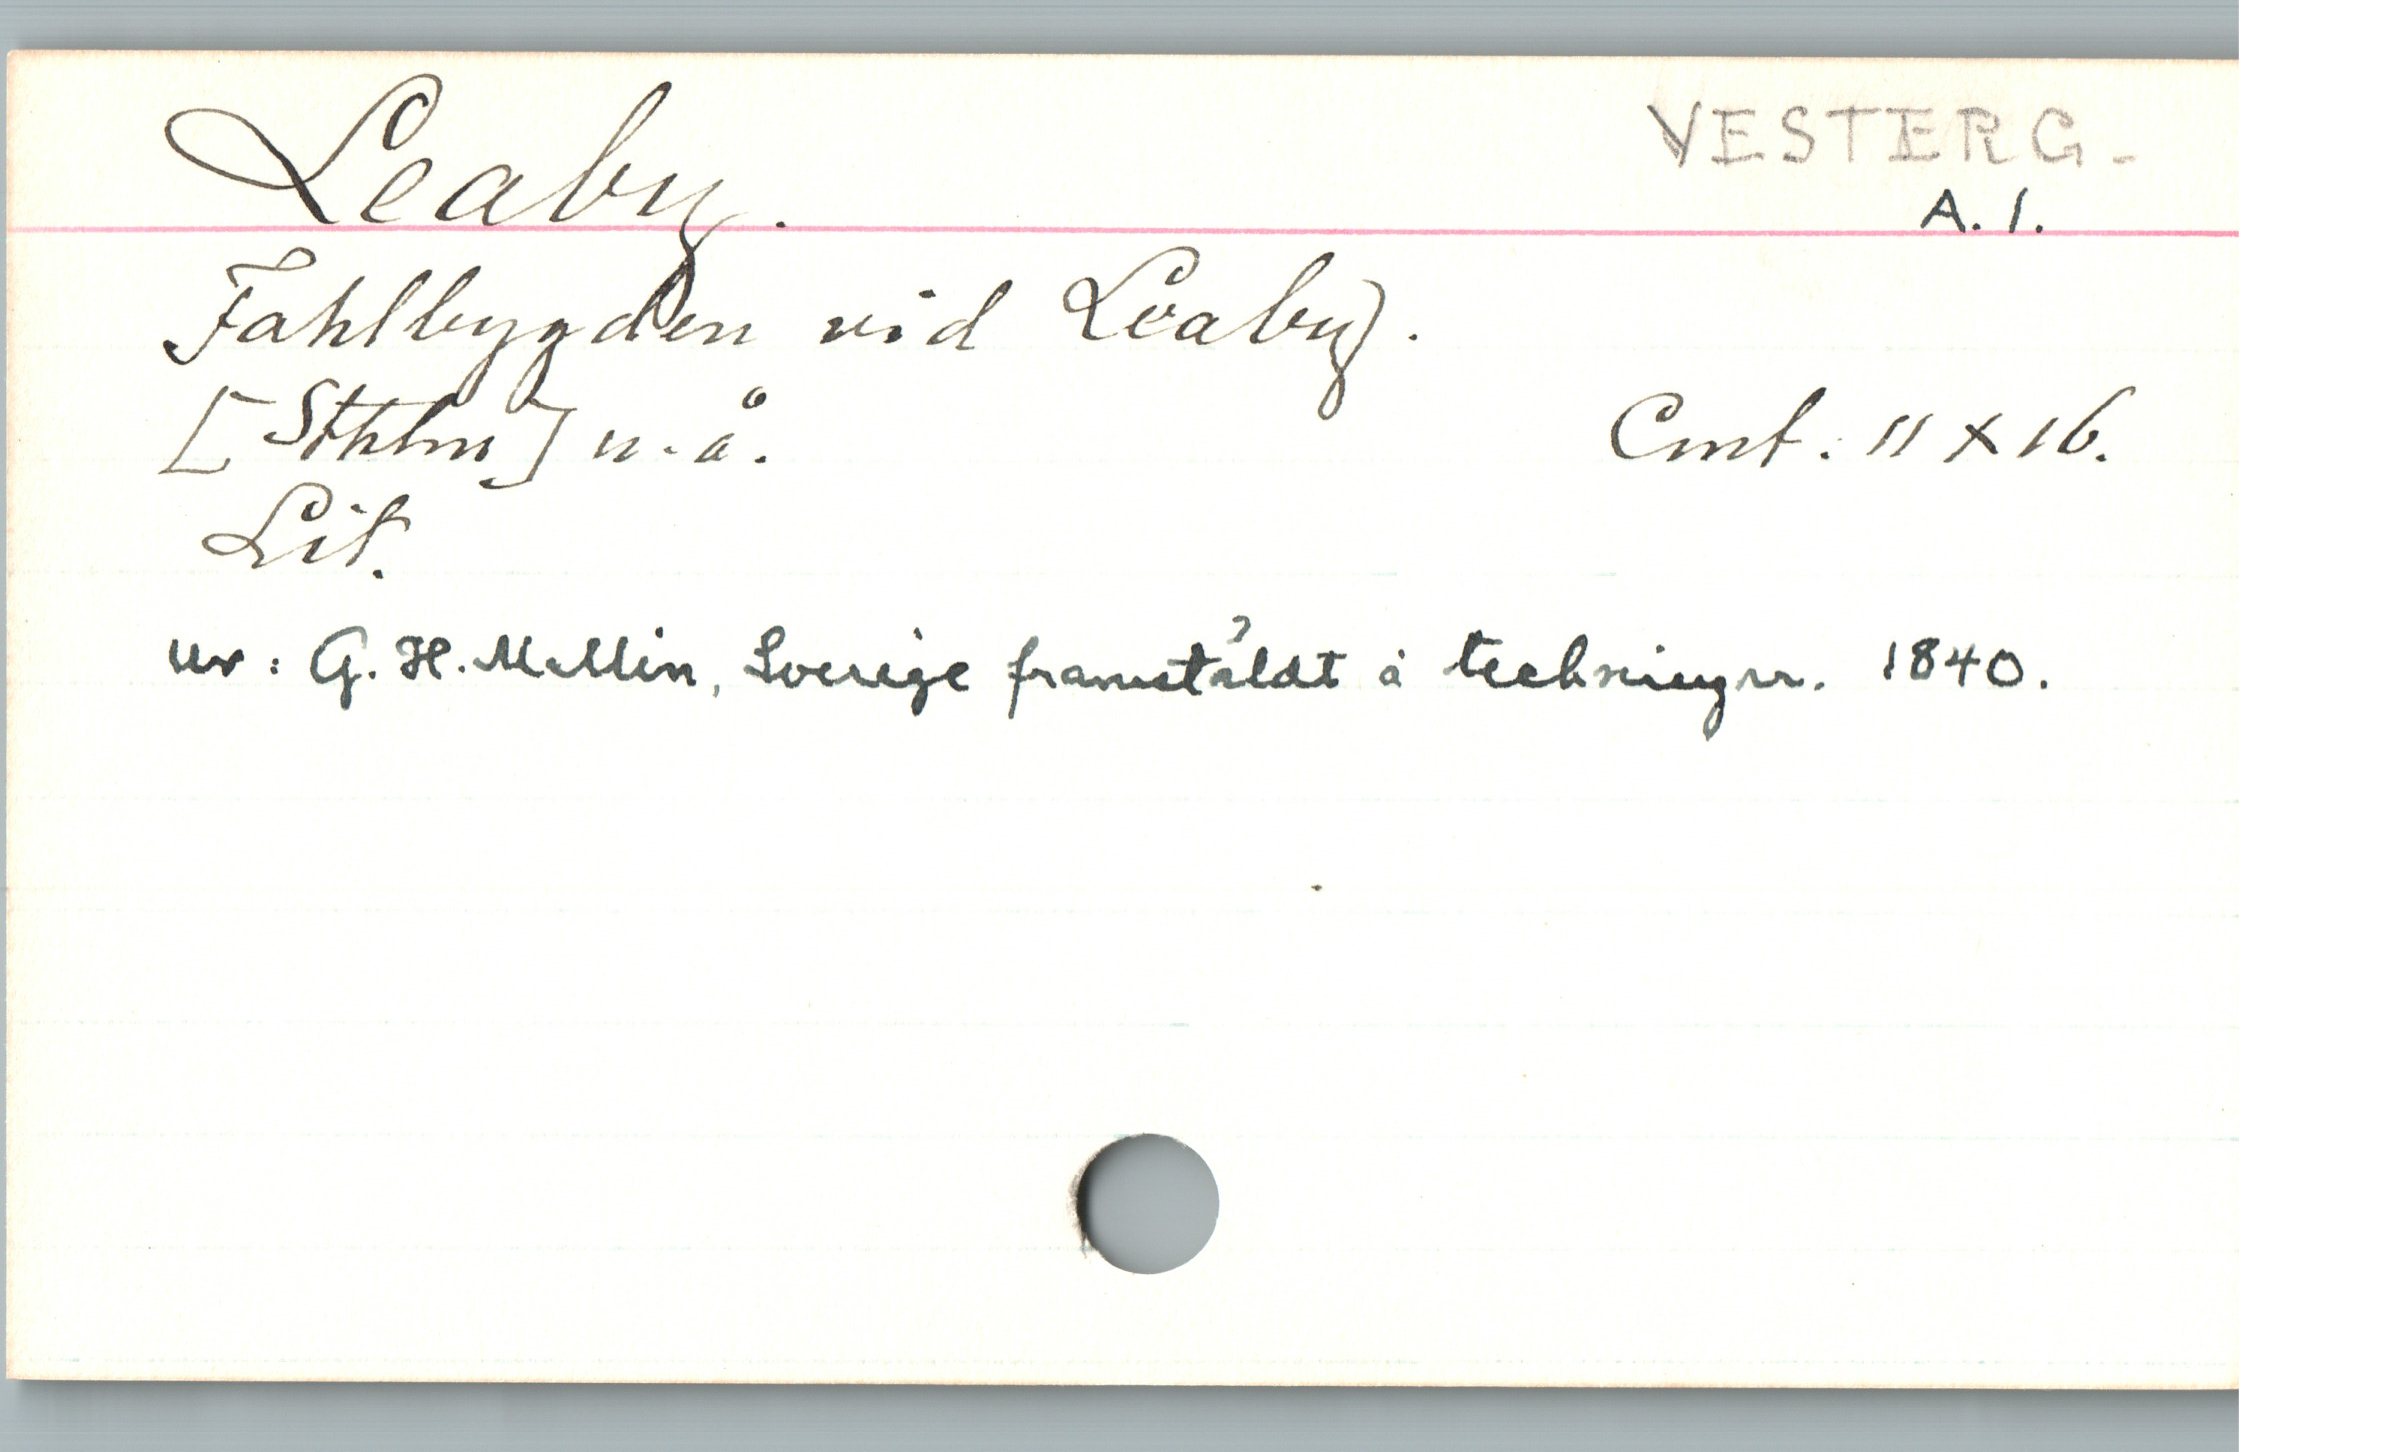 Leaby.
VESTERG.
A. 1.
Fahlbygden vid Leaby.
[Sthlm] u. å.
Cmt. 11 x 16.
Lit.
ur: G. H. Mellin, Sverige framstäldt i teckningar. 1840.